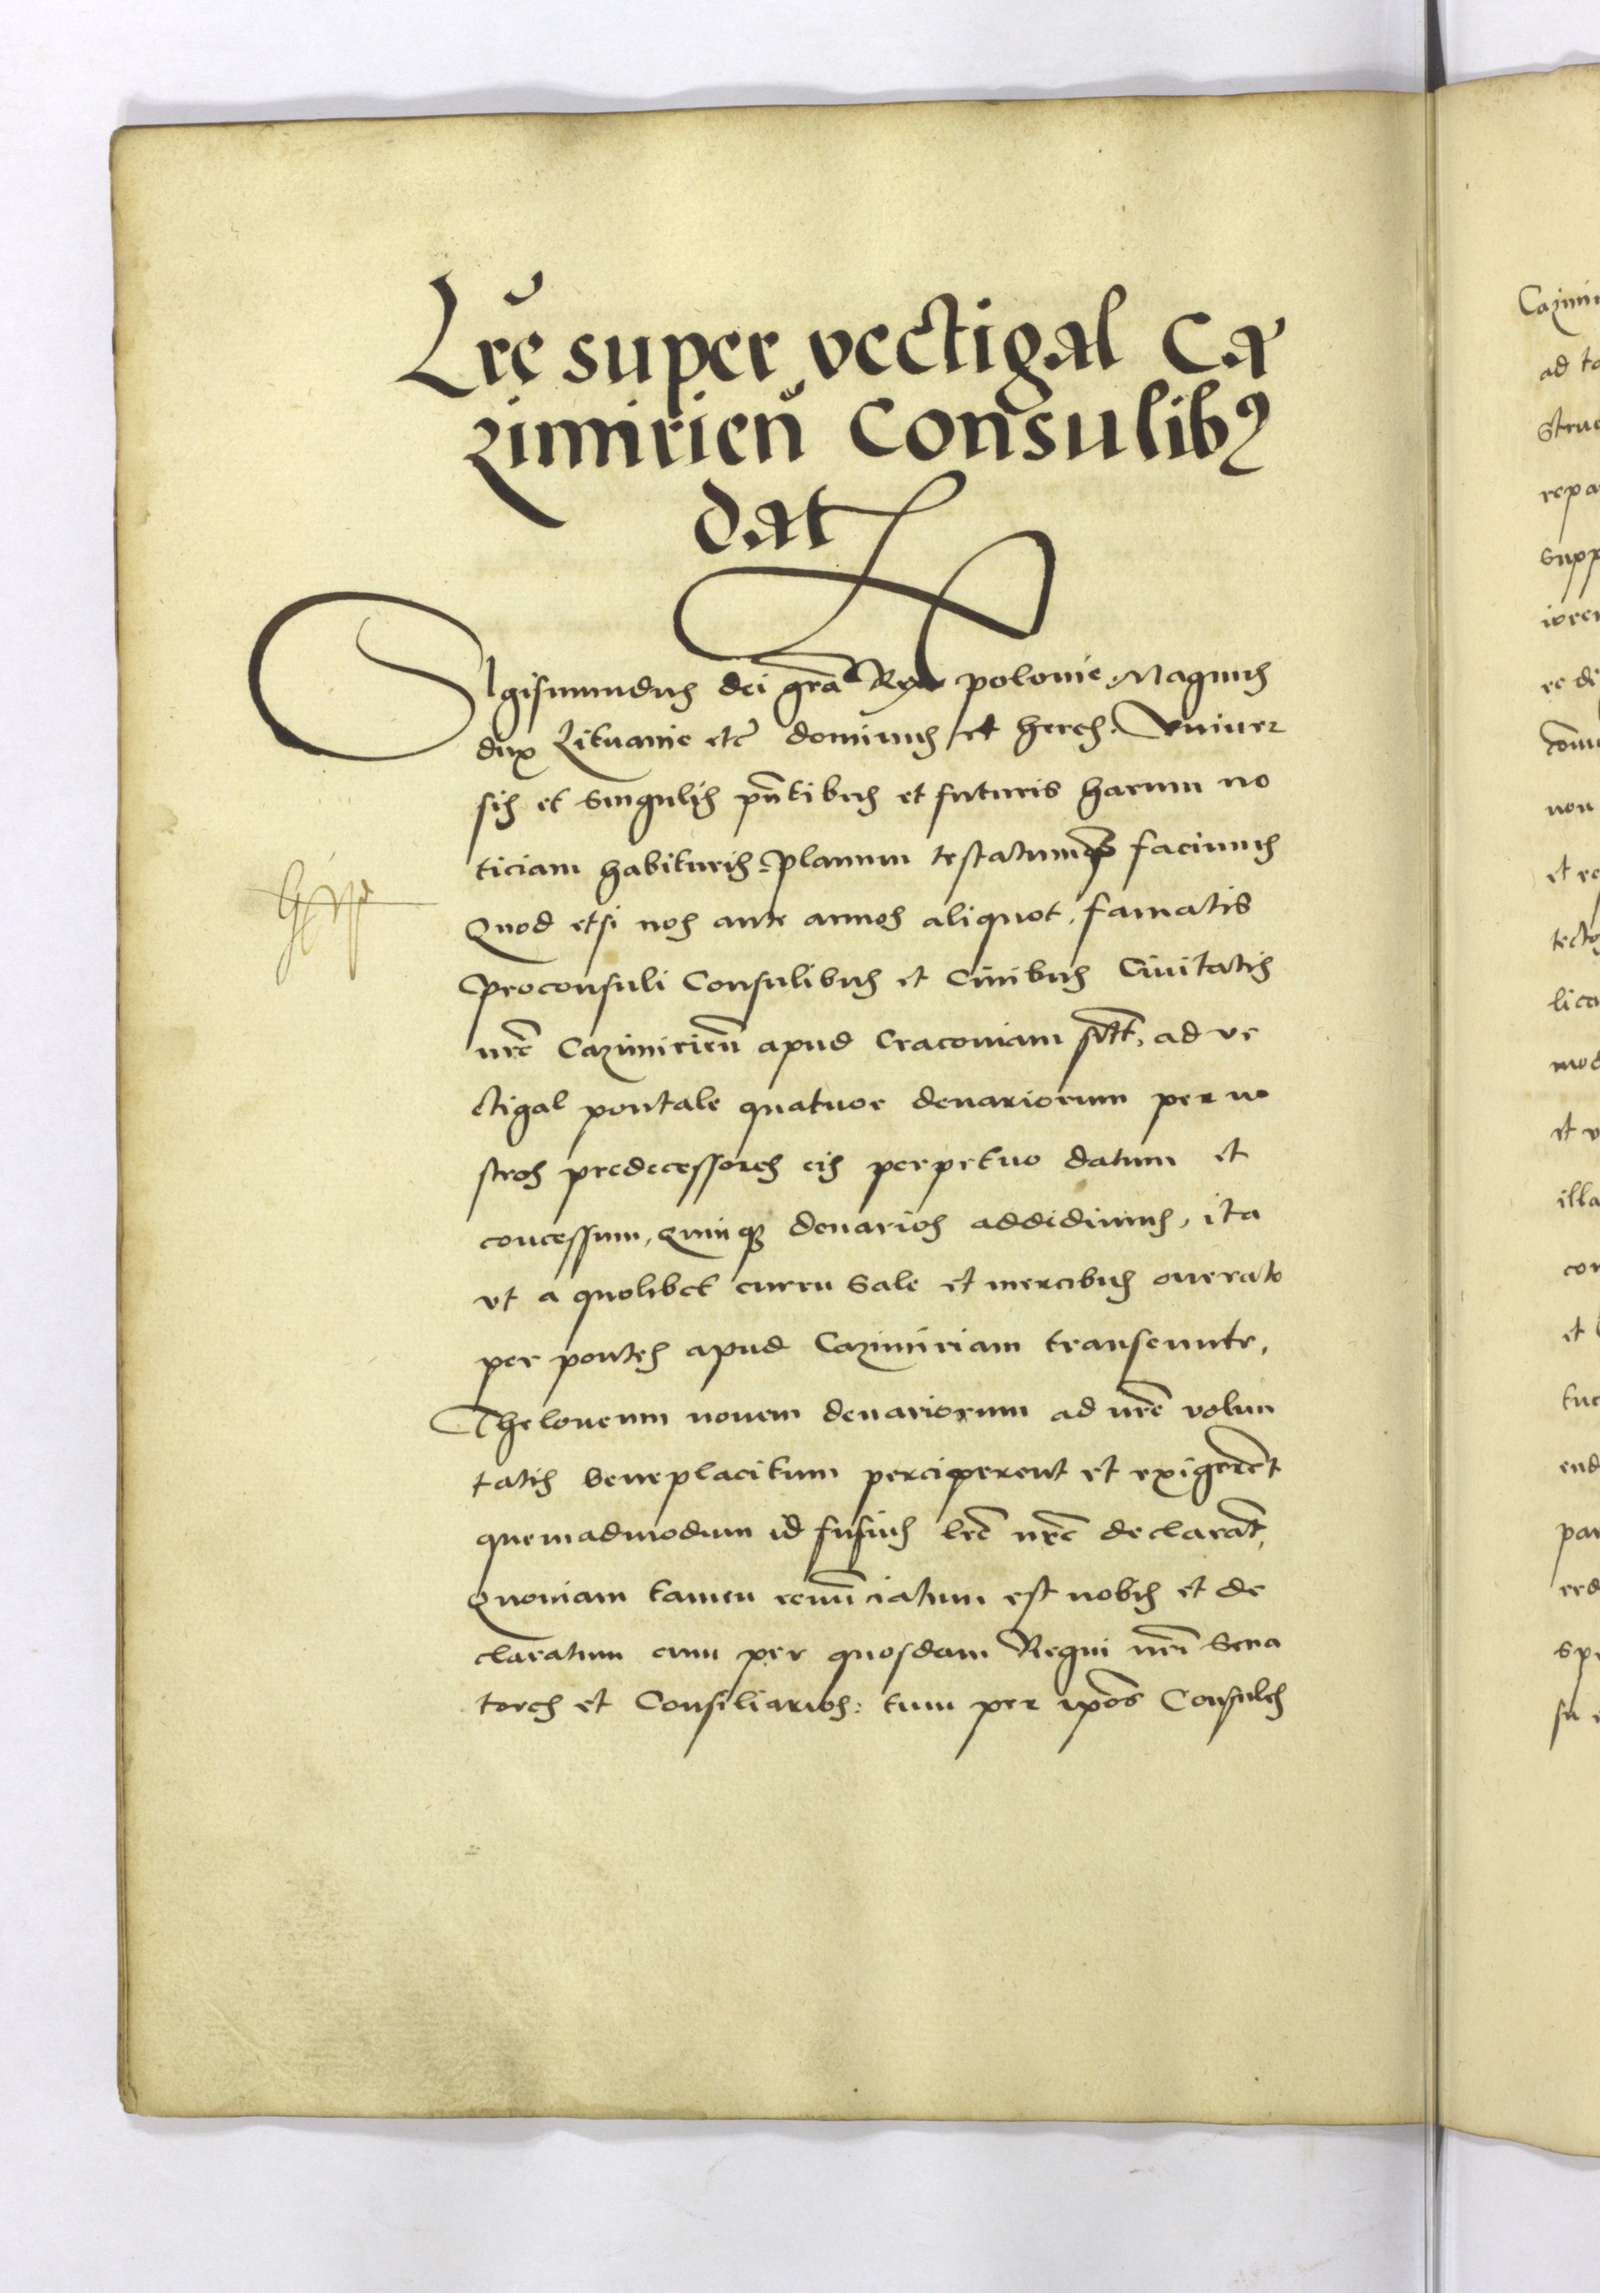 Lr̃e super vectigal Ca
zimirien̄ Consulibꝰ
dat
Sigismundus dei gr̃a Rex polonie, Magnus
dux Lituanie etc̃ dominus et heres. Vniuer
sis et singulis pñtibus et futuris harum no
ticiam habituris. Planum testatumqꝫ facimus
Quod etsi nos ante annos aliquot, famatis
Proconsuli Consulibus et Ciuibus Ciuitatis
nr̃e Cazimirien̄ apud Cracouiam ad ve
ctigal pontale quatuor denariorum per no
stros predecessores eis perpetuo datum et
concessum, quinqꝫ denarios addidimus, ita
vt a quolibet curru Sale et mercibus onerato
per pontes apud Cazimiriam transeunte,
Theloneum nouem denariorum ad nr̃e volun
tatis beneplacitum perciperent et exigerẽt
quemadmodum id fusius lr̃e nr̃e declarãt,
Quoniam tamen renũciatum est nobis et de
claratum cum per quosdam Regni nr̃i Sena
tores et Consiliarios: tum per ip̃os Consules
Cazimi
ad to
Stru
repa
Supp
re di
non
et re
tecto
lica
mod
et v
illa
con
et
tuc
end
par
red
spe